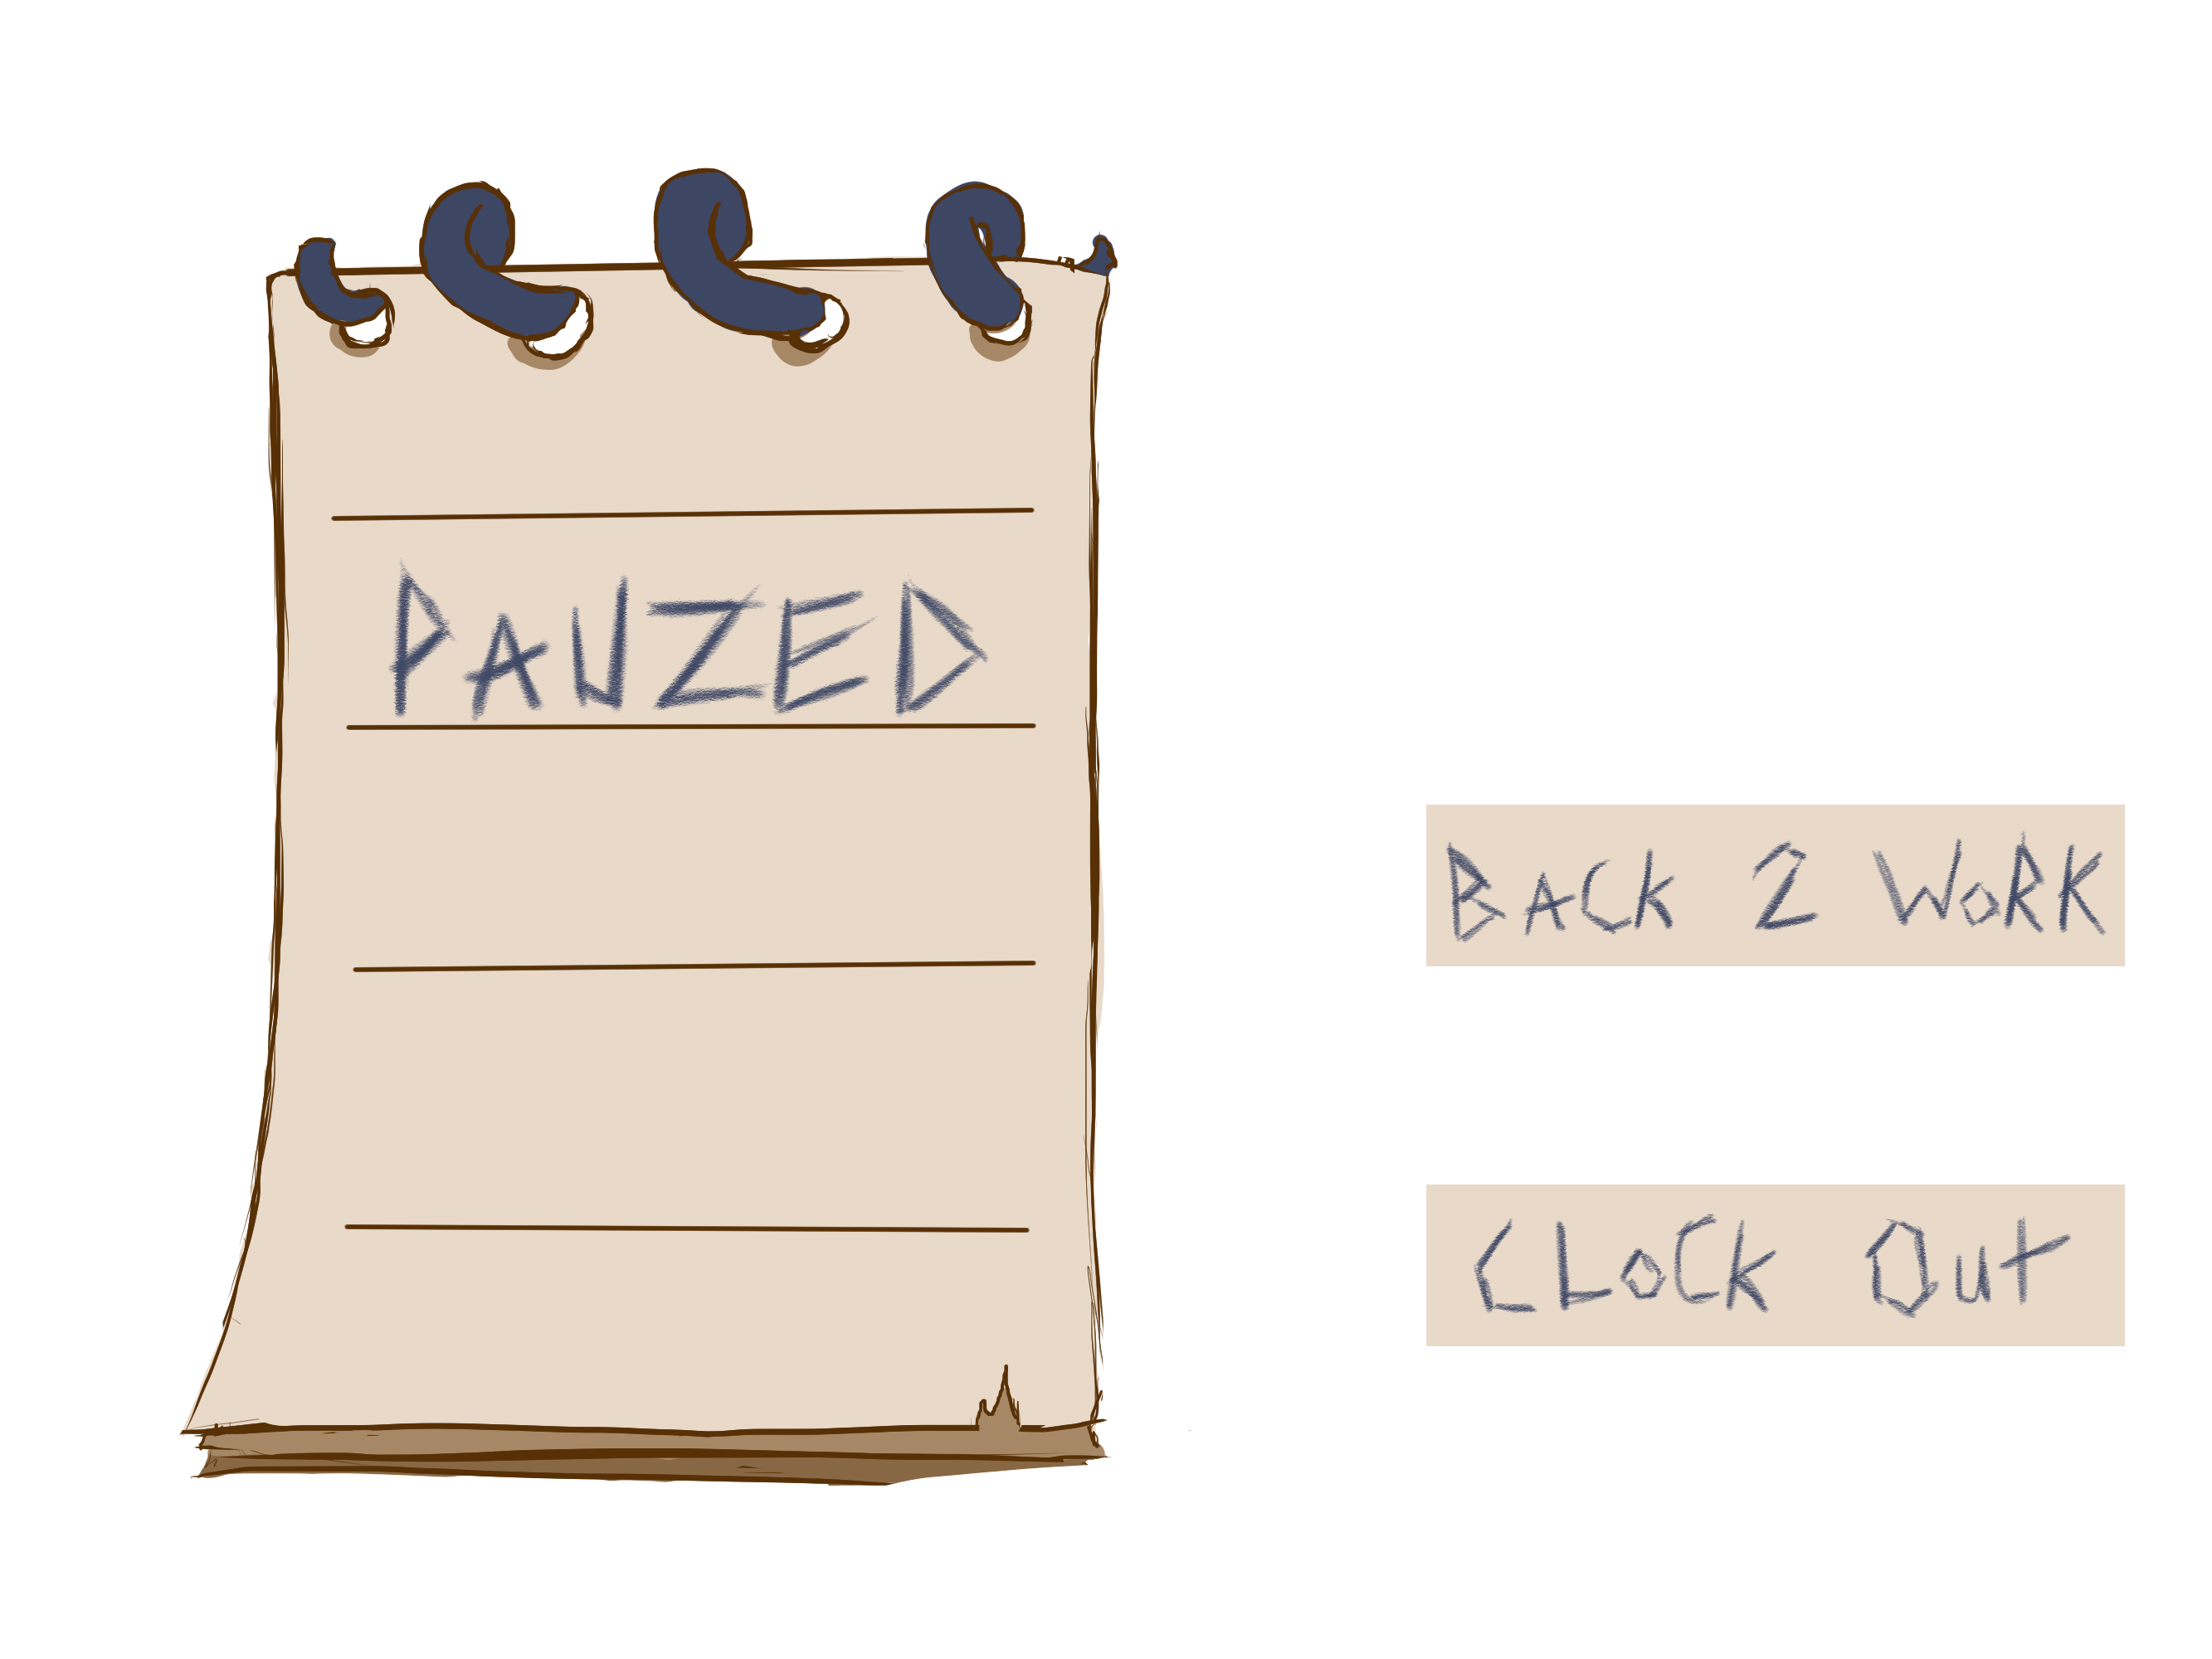 PAUZED
BACK 2 WORK
CLOCK OUt